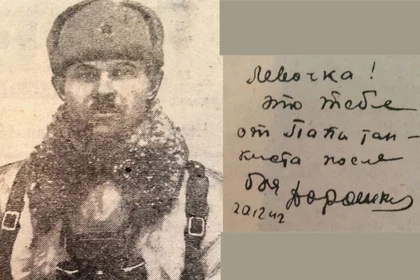 Левочка!
это тебе
от Папи тан-
киста после
боя Дорошкин
20.12.42